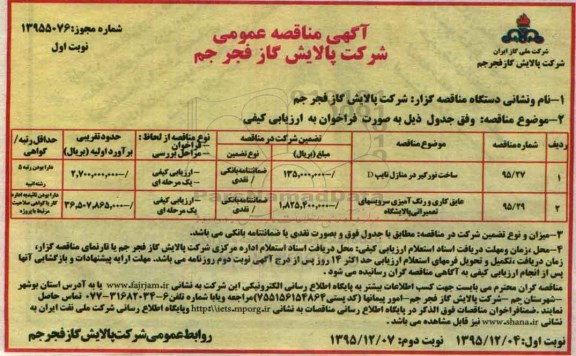 شماره مجوز: ۱۳۹۵۵۰۷۶
نوبت اول
آگهی مناقصه عمومی
شرکت پالایش گاز فجر جم
شرکت ملی گاز ایران
شرکت پالایش گاز فجر جم
۱- نام ونشانی دستگاه مناقصه گزار: شرکت پالایش گاز فجر جم
۲- موضوع مناقصه: وفق جدول ذیل به صورت فراخوان به ارزیابی کیفی
ردیف شماره مناقصه موضوع مناقصه تضمین شرکت در مناقصه نوع مناقصه از لحاظ: - فراخوان - مراحل بررسی حدود تقریبی برآورد اولیه (بریال) حداقل رتبه / گواهی
مبلغ (بریال) نوع تضمین
۱ ۹۵/۲۷ ساخت نورگیر در منازل تایپ D ۱۳۵,۰۰۰,۰۰۰/- ضمانتنامه بانکی / نقدی - ارزیابی کیفی - یک مرحله ای ۲,۷۰۰,۰۰۰,۰۰۰/- دارا بودن رتبه ۵ رشته ابنیه
۲ ۹۵/۲۹ عایق کاری و رنگ آمیزی سرویسهای تعمیراتی پالایشگاه ۱,۸۲۵,۴۰۰,۰۰۰/- ضمانتنامه بانکی / نقدی - ارزیابی کیفی - یک مرحله ای ۳۶,۵۰۷,۸۶۵,۰۰۰/- دارا بودن تائیدیه اداره کار یا گواهی صلاحیت مرتبط با پروژه
۳- میزان و نوع تضمین شرکت در مناقصه: مطابق با جدول فوق و بصورت نقدی یا ضمانتنامه بانکی می باشد.
۴- محل، زمان ومهلت دریافت اسناد استعلام ارزیابی کیفی: محل دریافت اسناد استعلام اداره مرکزی شرکت پالایش گاز فجر جم یا تارنمای مناقصه گزار،
زمان دریافت، تکمیل و تحویل فرمهای استعلام ارزیابی حد اکثر ۱۴ روز پس از درج آگهی نوبت دوم روزنامه می باشد. مهلت ارایه پیشنهادات و بازگشایی آنها
پس از انجام ارزیابی کیفی به آگاهی مناقصه گران رسانیده می شود.
مناقصه گران محترم می بایست جهت کسب اطلاعات بیشتر به پایگاه اطلاع رسانی الکترونیکی این شرکت به نشانی www.fajrjam.ir یا به آدرس استان بوشهر
- شهرستان جم - شرکت پالایش گاز فجر جم - امور پیمانها (کد پستی ۷۵۵۱۵۶۱۵۴۸۶۴) مراجعه ویابا شماره تلفن ۶-۳۱۶۸۲۰۳۴-۰۷۷ تماس حاصل
نمایند. ضمنافراخوان مناقصات فوق الذکر در پایگاه اطلاع رسانی مناقصات به نشانی http:\\iets.mporg.ir وپایگاه اطلاع رسانی شرکت ملی نفت ایران به
نشانی www.shana.ir نیز قابل مشاهده می باشد.
نوبت اول: ۱۳۹۵/۱۲/۰۴ نوبت دوم: ۱۳۹۵/۱۲/۰۷ روابط عمومی شرکت پالایش گاز فجر جم